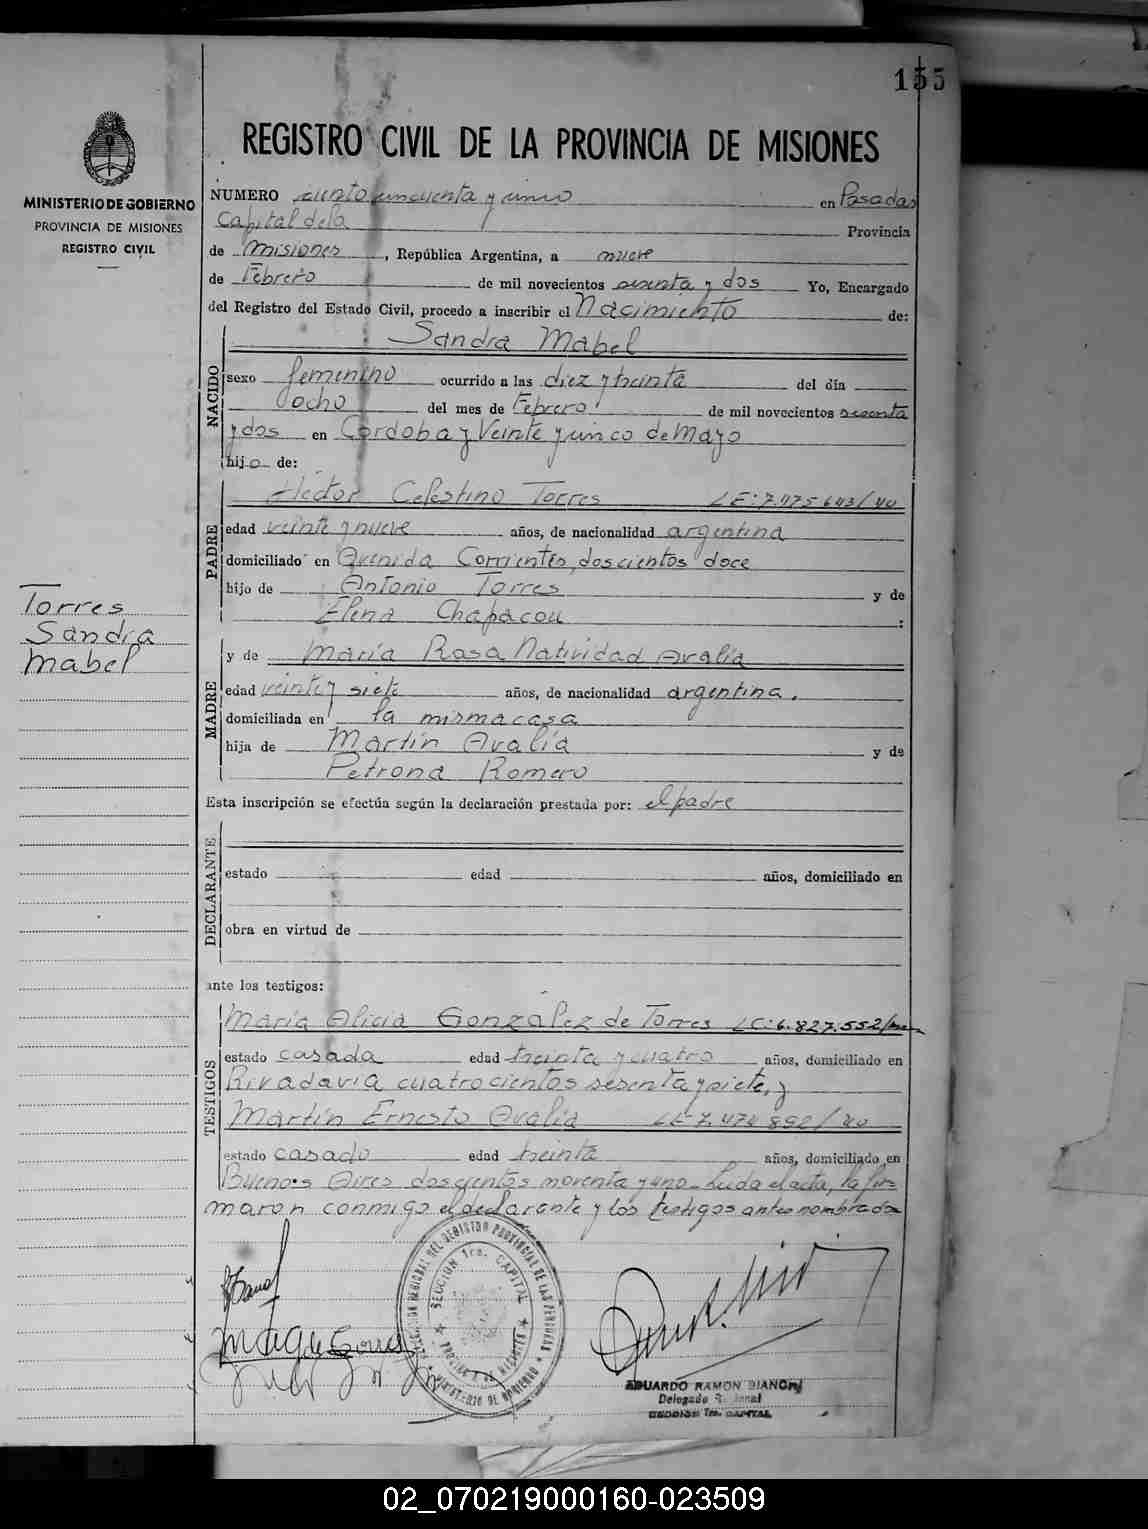 155
REGISTRO CIVIL DE LA PROVINCIA DE MISIONES
MINISTERIO DE GOBIERNO
PROVINCIA DE MISIONES
REGISTRO CIVIL
NUMERO ciento cincuenta y cinco en Posadas
Capital de la Provincia
de Misiones, República Argentina, a nueve
de Febrero de mil novecientos sesenta y dos Yo, Encargado
del Registro del Estado Civil, procedo a inscribir el Nacimiento de:
NACIDO
Sandra Mabel
sexo femenino ocurrido a las diez y treinta del día
ocho del mes de Febrero de mil novecientos sesenta
y dos en Cordoba y Veinte y cinco de Mayo
hijo de:
PADRE
Hector Celestino Torres LE: 7.475.643/40
edad veinte y nueve años, de nacionalidad argentina
domiciliado en Avenida Corrientes, doscientos doce
hijo de Antonio Torres y de
Elena Chapacou :
Torres
Sandra
Mabel
MADRE
y de María Rosa Natividad Avalia
edad veinte y siete años, de nacionalidad argentina.
domiciliada en la misma casa
hija de Martín Avalía y de
Petrona Romero
Esta inscripción se efectúa según la declaración prestada por: el padre
DECLARANTE
estado edad años, domiciliado en
obra en virtud de
ante los testigos:
TESTIGOS
María Alicia González de Torres LC: 6.827.552
estado casada edad treinta y cuatro años, domiciliado en
Rivadavia cuatrocientos sesenta y siete, y
Martín Ernesto Avalía LE 7.474.892/40
estado casado edad treinta años, domiciliado en
Buenos Aires doscientos noventa y uno. Leida el acta, la fir
maron conmigo el declarante y los testigos antes nombrados
SECCION 1ra. CAPITAL
PROVINCIA DE MISIONES
MINISTERIO DE GOBIERNO
EDUARDO RAMON BIANCHI
Delegado Regional
SECCION 1ra. CAPITAL
02_070219000160-023509